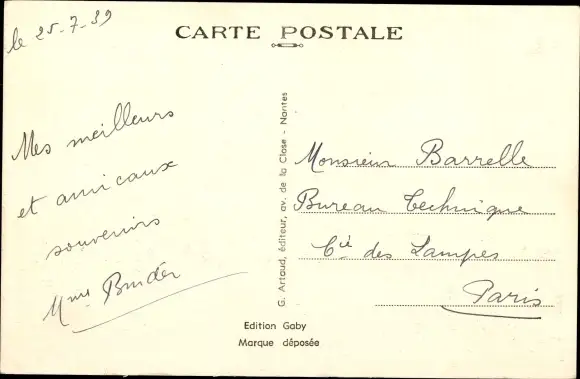 le 25-7-39
CARTE POSTALE
Mes meilleurs
et amicaux
souvenirs
Mme Binder
G. Artaud, éditeur, av. de la Close - Nantes
Monsieur Barrelle
Bureau Technique
Cie des Lampes
Paris
Edition Gaby
Marque déposée